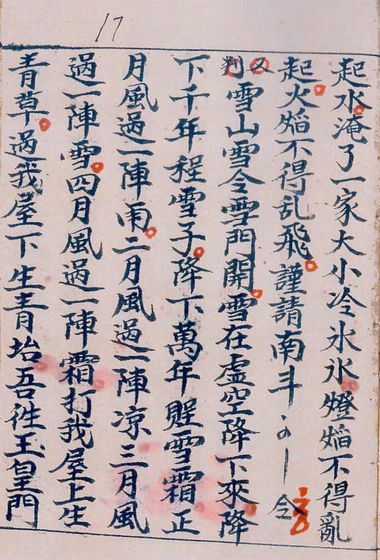 17
起水淹了一家大小冷氷氷燈焰不得亂
起火焰不得乱飛謹請南斗令
又判雪山雪令雪門開雪在虚空降下來降
下千年程雪子降下萬年壓雪霜正
月風過一陣雨二月風過一陣凉三月風
過一陣雪四月風過一陣霜打我屋上生
青草過我屋下生青吾徃玉皇門